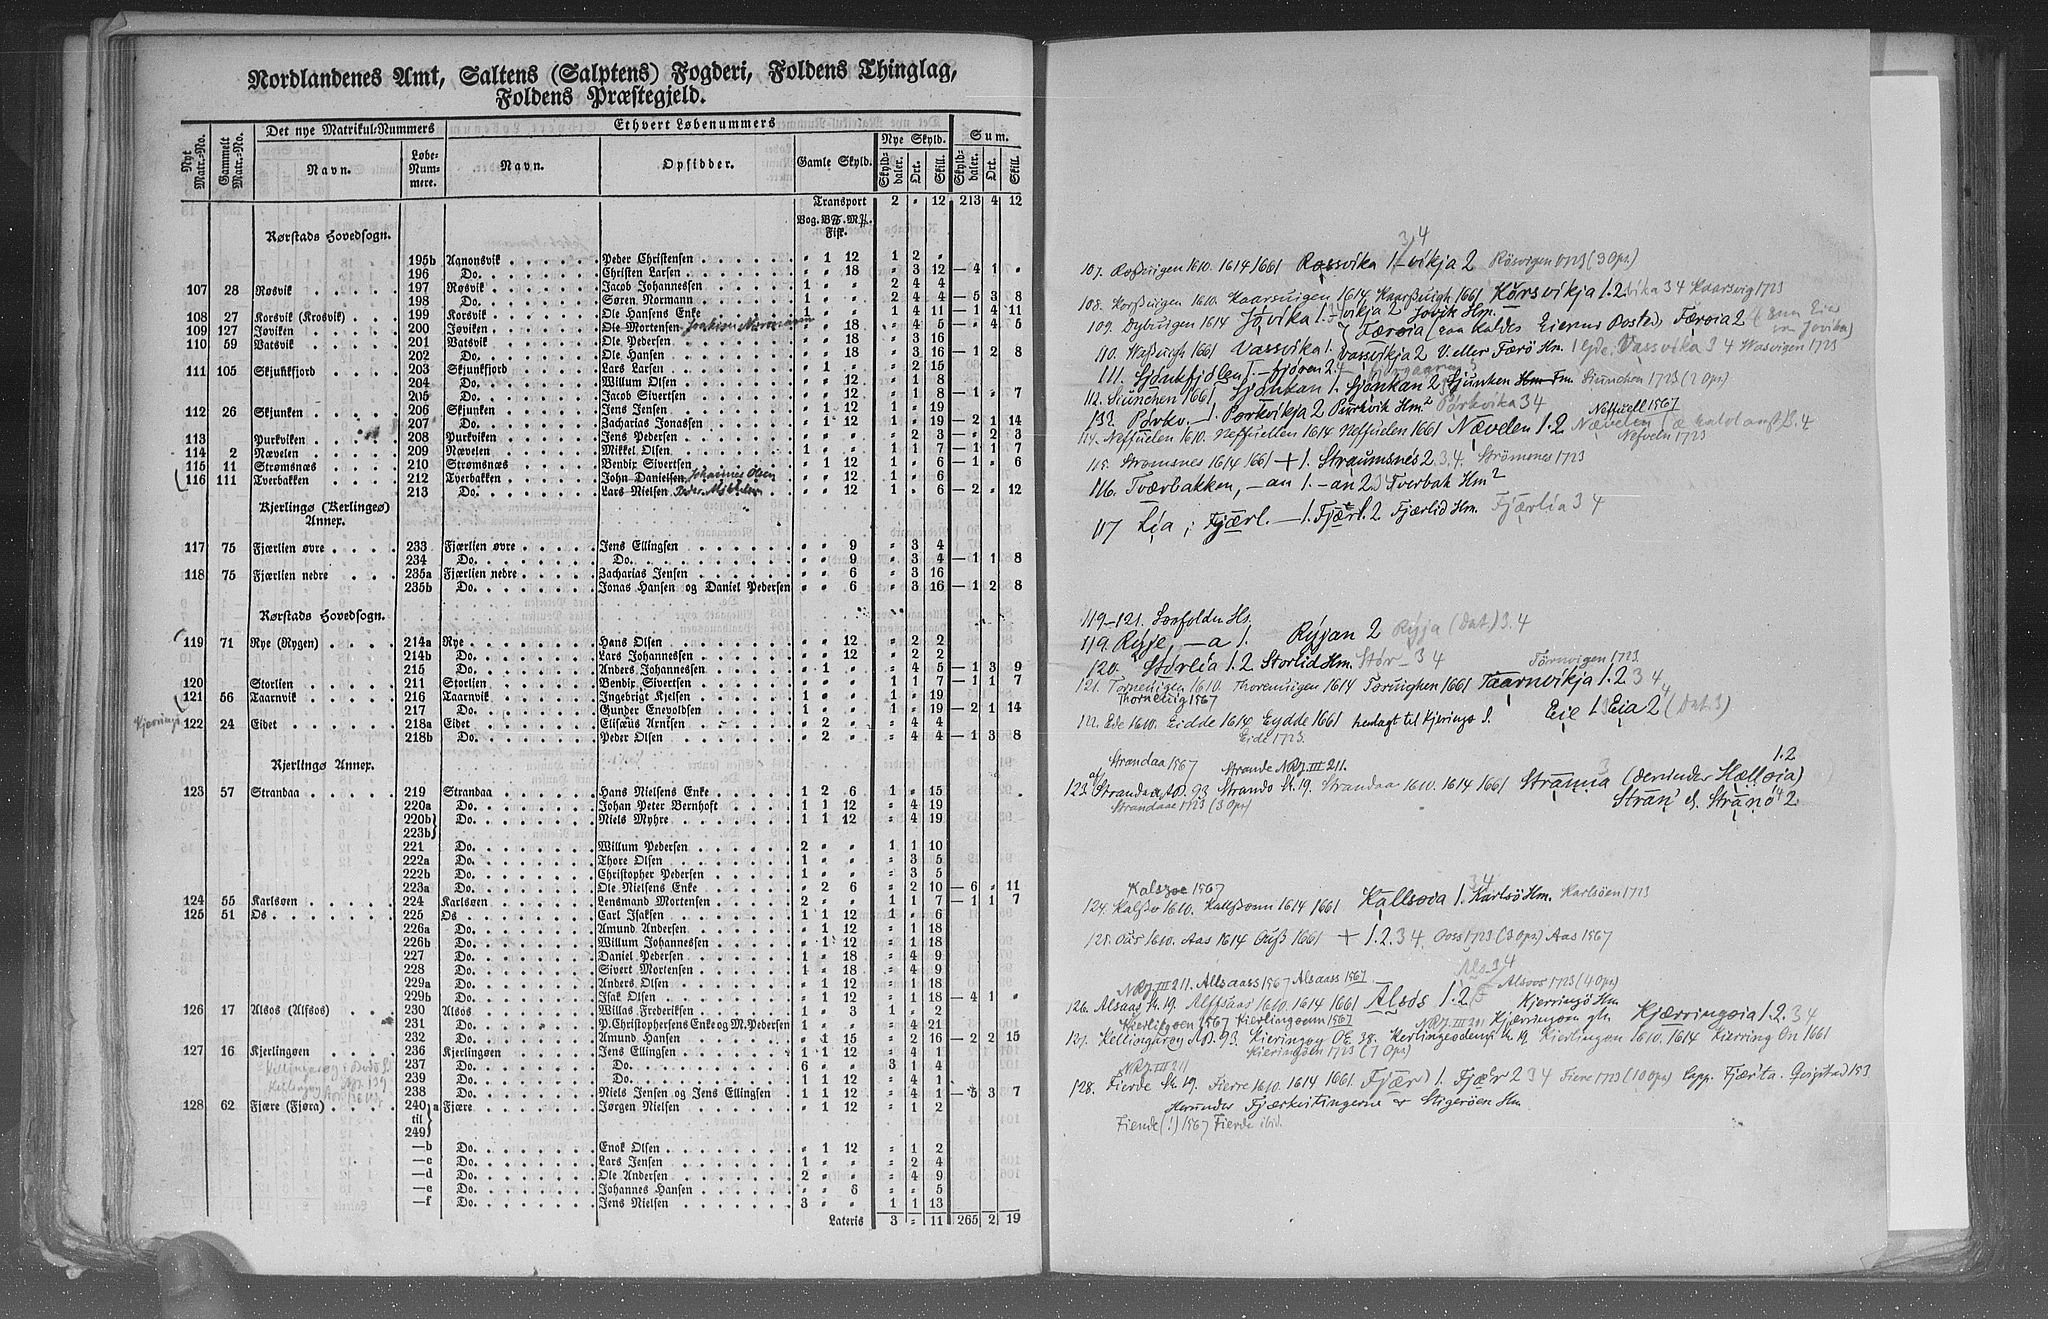 Nordlandenes Amt, Saltens (Salptens) Fogderi, Foldens Thinglag,
Foldens Præstegjeld.
Nyt Matr.-No. Gammelt Matr.-No. Det nye Matrikul-Nummers Ethvert Løbenummers
Navn. Løbe-Nummere. Navn. Opsidder. Gamle Skyld. Nye Skyld. Sum.
Skylddaler. Ort. Skill. Skylddaler. Ort. Skill.
Transport 2 " 12 213 4 12
Vog. B℔. M℔.
Fisk.
Rørstads Hovedsogn.
195b Agnonsvik Peder Christensen " 1 12 1 2 "
196 Do. Christen Larsen " " 18 " 3 12 — 4 1 "
107 28 Røsvik 197 Røsvik Jacob Johannessen 1 " " 2 4 4
198 Do. Søren Normann 1 " " 2 4 4 — 5 3 8
108 27 Korsvik (Krosvik) 199 Korsvik Ole Hansens Enke 1 " " 1 4 11 — 1 4 11
109 127 Jøviken 200 Jøviken Ole Mortensen Joakim Normann " " 18 " 4 5 — " 4 5
110 59 Vatsvik 201 Vatsvik Ole Pedersen " " 18 " 3 16
202 Do. Ole Hansen " " 18 " 3 16 — 1 2 8
111 105 Skjunkfjord 203 Skjunkfjord Lars Larsen " 1 " " 2 15
204 Do. Willum Olsen " " 12 " 1 8
205 Do. Jacob Sivertsen " " 12 " 1 8 — 1 " 7
112 26 Skjunken 206 Skjunken Jens Jensen " 1 12 1 " 19
207 Do. Zacharias Jonassen " 1 12 1 " 19 — 2 1 14
113 Purkviken 208 Purkviken Jens Pedersen " " " " 2 3 — " 2 3
114 2 Nævelen 209 Nævelen Mikkel Olsen 1 " " 1 1 7 — 1 1 7
115 11 Strømsnæs 210 Strømsnæs Bendix Sivertsen " 1 12 1 " 6 — 1 " 6
116 111 Tverbakken 212 Tverbakken John Danielsen Johannes Olsen " " 12 1 " 6
213 Do. Lars Nielsen " " 12 1 " 6 — 2 " 12
Kjerlingø (Kerlingeø)
Annex.
117 75 Fjærlien øvre 233 Fjærlien øvre Jens Ellingsen " " 9 " 3 4
234 Do. Do. " " 9 " 3 4 — 1 1 8
118 75 Fjærlien nedre 235a Fjærlien nedre Zacharias Jensen " " 6 " 3 16
235b Do. Jonas Hansen og Daniel Pedersen " " 6 " 3 16 — 1 2 8
Rørstads Hovedsogn.
119 71 Rye (Rygen) 214a Rye Hans Olsen " " 12 " 2 2
214b Do. Lars Johannessen " " 12 " 2 2
215 Do. Anders Johannessen " 1 " " 4 5 — 1 3 9
120 Storlien 211 Storlien Bendix Sivertsen " " " 1 1 7 — 1 1 7
121 56 Taarnvik 216 Taarnvik Ingebrigt Kjelsen 1 " " 1 " 19
217 Do. Gunder Enevoldsen 1 " " 1 " 19 — 2 1 14
Kjerringø 122 24 Eidet 218a Eidet Elisæus Arntsen " 2 " " 4 4
218b Do. Peder Olsen " 2 " " 4 4 — 1 3 8
Kjerlingø Annex.
123 57 Strandaa 219 Strandaa Hans Nielsens Enke 1 2 6 1 " 15
220a Do. Johan Peter Bernhoft 1 1 12 " 4 19
220b Do. Niels Myhre 1 1 12 " 4 19
223b
221 Do. Willum Pedersen 2 " " 1 1 10
222a Do. Thore Olsen 1 " " " 3 5
222b Do. Christopher Pedersen 1 " " " 3 5
223a Do. Ole Nielsens Enke " 2 6 " 2 10 — 6 " 11
124 55 Karlsøen 224 Karlsøen Lensmand Mortensen 2 " " 1 1 7 — 1 1 7
125 51 Os 225 Os Carl Isaksen 1 1 12 1 " 6
226a Do. Amund Andersen " 1 12 " 1 18
226b Do. Willum Johannessen " 1 12 " 1 18
227 Do. Daniel Pedersen 1 " 18 " 4 9
228 Do. Sivert Mortensen 1 " 18 " 4 9
229a Do. Anders Olsen " 1 12 " 1 18
229b Do. Isak Olsen " 1 12 " 1 18 — 4 1 "
126 17 Alsos (Alfsos) 230 Alsos Willas Frederiksen 1 " 3 1 " 2
231 Do. P. Christophersens Enke og M. Pedersen 1 " " " 4 21
232 Do. Amund Hansen " 1 15 " 2 16 — 2 2 15
127 16 Kjerlingøen 236 Kjerlingøen Jens Ellingsen 1 1 12 " 4 1
237 Do. Do. 6 " " 3 1 4
239 Do. Do. 1 1 12 " 4 1
238 Do. Niels Jensen og Jens Ellingsen 1 1 12 " 4 1 — 5 3 7
128 62 Fjære (Fjøra) 240 a Fjære Jørgen Nielsen " 1 12 " 1 2
til
249
—b Do. Enok Olsen " 1 12 " 1 2
—c Do. Lars Jensen 1 " " " 2 4
—d Do. Ole Andersen 2 " " " 4 9
—e Do. Johannes Hansen " " 6 " " 5
—f Do. Jens Nielsen 3 " " 1 1 13
Lateris 3 " 11 265 2 19
3,4
107. Roßuigen 1610. 1614 1661 Rossvika 1. -vikja 2 Røsvigen 1723 (3 Ops)
108. Korßuigen 1610. Kaarsuigen 1614 Kaarßuigh 1661 Korsvikja 1.2. vika 34 Kaarsvig 1723
109. Dybuigen 1614 Jøvika 1.3 -vikja 2 Jøvik Hm.
Færøia (saa kaldes Eiernes Posted) Færøia 2
110. Waßuigh 1661 Vassvika 1. Vassvikja 2 V. eller Færø Hm. Vassvika 3 4 Wasvigen 1723
111. Sjønkfjolen 1. -fjøren 2.4
112. Siunchen 1661 Sjønkan 1. Sjønkan 2 Sjunken Hm. Siunchen 1723 (2 Ops)
133. Pörkv. — 1. Porkvikja 2 Purkvik Hm. Pörkvika 34
Neffuell 1567
114. Neffuelen 1610. Neffuellen 1614 Neffuelen 1661 Nævelen 1.2 Nævelen
Nefveln 1723
115. Stromsnes 1614 1661 + 1. Straumsnes 2 3.4. Strömsnes 1723
116. Tværbakken, -an 1. -an 2 34 Tverbak Hm²
117 Lia; Fjærl. — 1. Fjærl. 2 Fjærlid Hm. Fjærlia 3 4
119-121. Sørfolden Hs.
119. Røyje, -a 1. Røyjan 2 Røyja (Dat.) 3.4
120. Størlia 1.2 Storlid Hm. Stør- 3 4
Törnvigen 1723.
121. Torneuigen 1610. Thoreuuigen 1614 Toruighen 1661 Taarnvikja 1.2 3 4
Thorneuig 1567
122. Ede 1610. Eidde 1614 Eydde 1661 henlagt til Kjeringø S. Eie 1 3 Eia 2 4 (Dat. 3)
Eide 1723.
Strandaa 1567 Strande NRJ. III 211. 1.2
123. af Strandaa AB. 93 Strando Sk. 19. Strandaa 1610. 1614 1661 Stranna (derunder Hælløia)
Strandaae 1723 (3 Ops) Stran' el. Stranö 4 2
Kalszoe 1567
124. Kalßø 1610. Kallßonn 1614 1661 Kallsøia 1. 34 Karlsö Hm. Karlsöen 1723
125. Oür 1610. Aas 1614 Ouß 1661 + 1.2 3 4. Ooss 1723 (3 Ops) Aas 1567
NRJ. III 211. Allsaass 1567 Alsaass 1567 Als- 3 4 Alsoos 1723 (4 Ops)
126. Alsaas Sk. 19. Alffsaas 1610. 1614 1661 Alsøs 1.2 Kjerringö Hm.
Kierlifgoen 1567 Kierlingounn 1567 NRJ. III 211 Kjærringøen gln. Kjærringøia 1.2. 3 4
127. Kellingarøy AB. 93. Kieringøy OE. 38. Kerlingeodenss Sk. 19. Kierlingøn 1610. 1614 Kierring Øn 1661
Kieringöen 1723 (7 Ops)
NRJ. III 211
128. Fierde Sk. 19. Fierre 1610. 1614 1661. Fjær 1. Fjær 2 3 4 Fiere 1723 (10 Ops) Lapp. Fjærta. Qvigstad 153.
Herunder Fjærkvitingerne or Stigerøen Hm
Fiende (!) 1567 Fierde ibid.